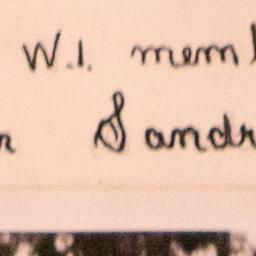 W.I. mem
Sandr